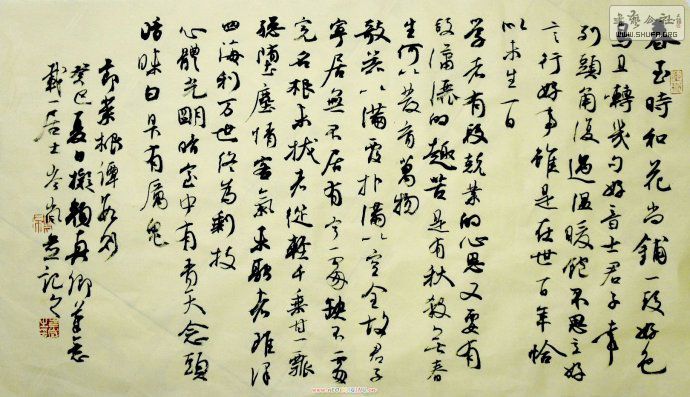 春至時和花尚鋪一段好色
鳥且轉幾句好音士君子幸
列頭角復遇溫暖飽不思立好
言行好事雖是在世百年恰
似未生一日
學者有段兢業的心思又要有
段瀟灑的趣苦是有秋殺無春
生何以發育萬物
敧器以滿覆撲滿以空全故君子
寧居無不居有寧處缺不處
完名根未拔者縱輕千乘甘一瓢
總墮塵情客氣未融者雖澤
四海利萬世終為剩技
心體光明暗室中有青天念頭
暗昧白日有厲鬼
節菜根譚數則
癸巳夏日擬顏真卿筆意
居士並記之
WWW.SHUFA.ORG